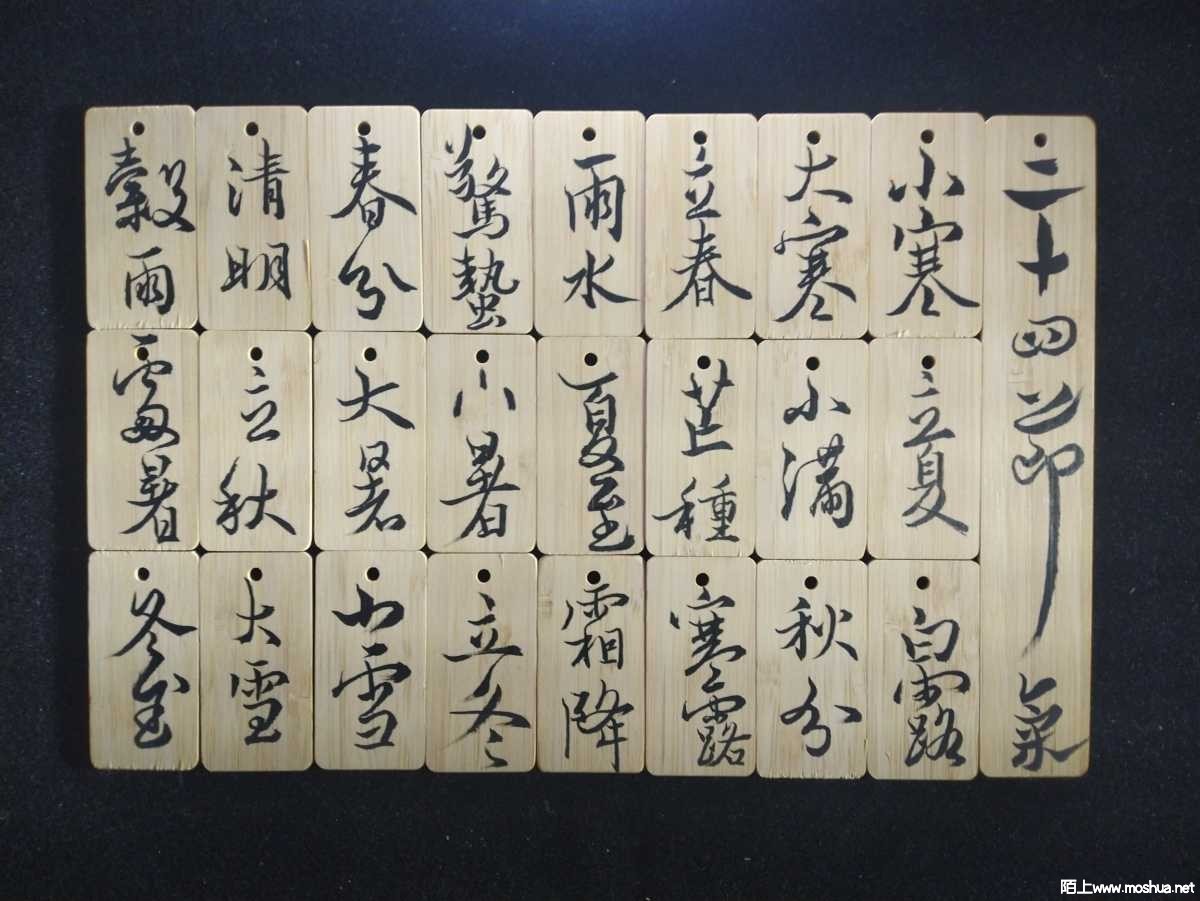 二十四節氣
小寒
大寒
立春
雨水
驚蟄
春分
清明
穀雨
立夏
小滿
芒種
夏至
小暑
大暑
立秋
處暑
白露
秋分
寒露
霜降
立冬
小雪
大雪
冬至
陌上www.moshua.net